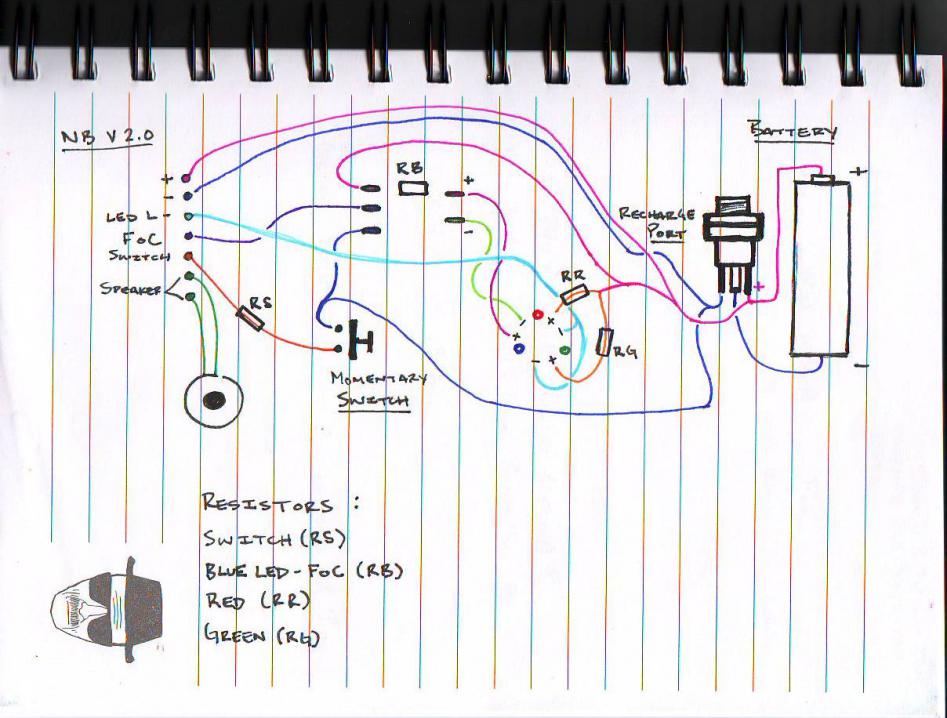 NB V 2.0
BATTERY
+
-
LED L -
FOC
SWITCH
SPEAKER
RS
RB
+
-
RECHARGE
PORT
+
+
-
RR
RG
- +
+ -
- +
MOMENTARY
SWITCH
RESISTORS :
SWITCH (RS)
BLUE LED - FOC (RB)
RED (RR)
GREEN (RG)